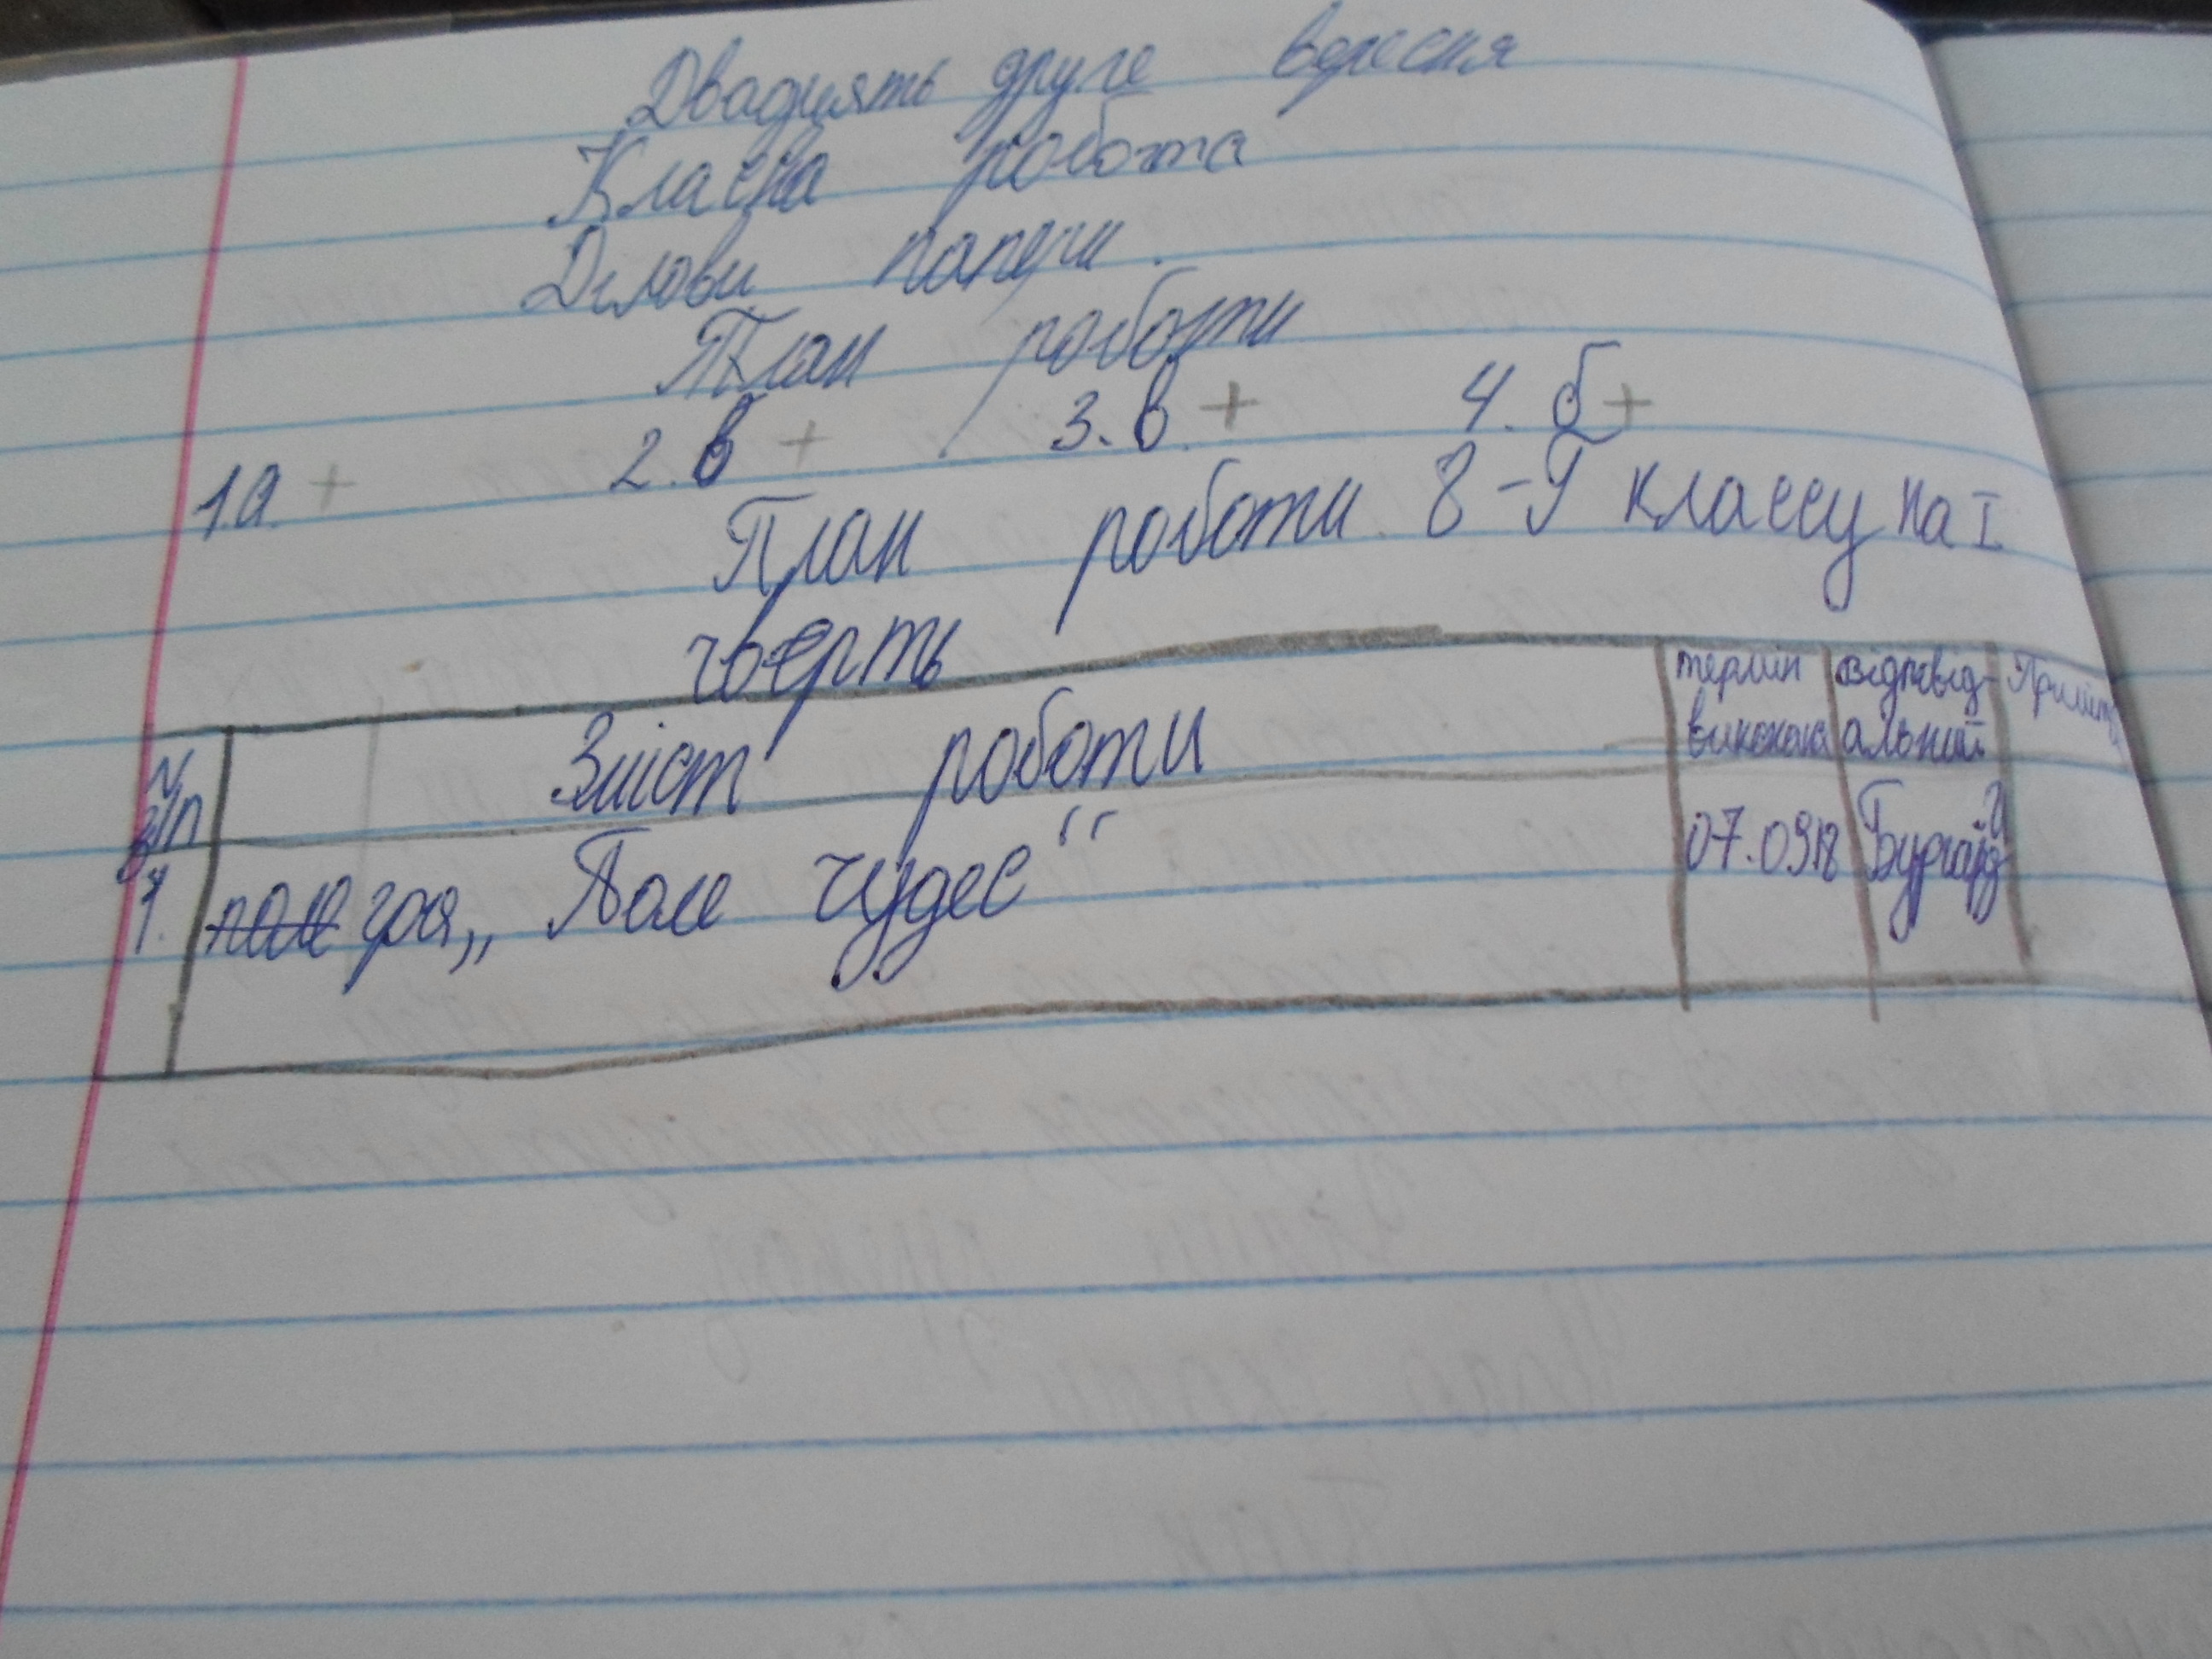 Двадцять друге вересня
Класна робота
Ділові папери.
План роботи
1.а. + 2. в + 3. в. + 4. б +
План роботи 8-Г классу на I
чверть
N з/п Зміст роботи термін відповід-
альний
1. поле гра,, Поле чудес" 07.09.18